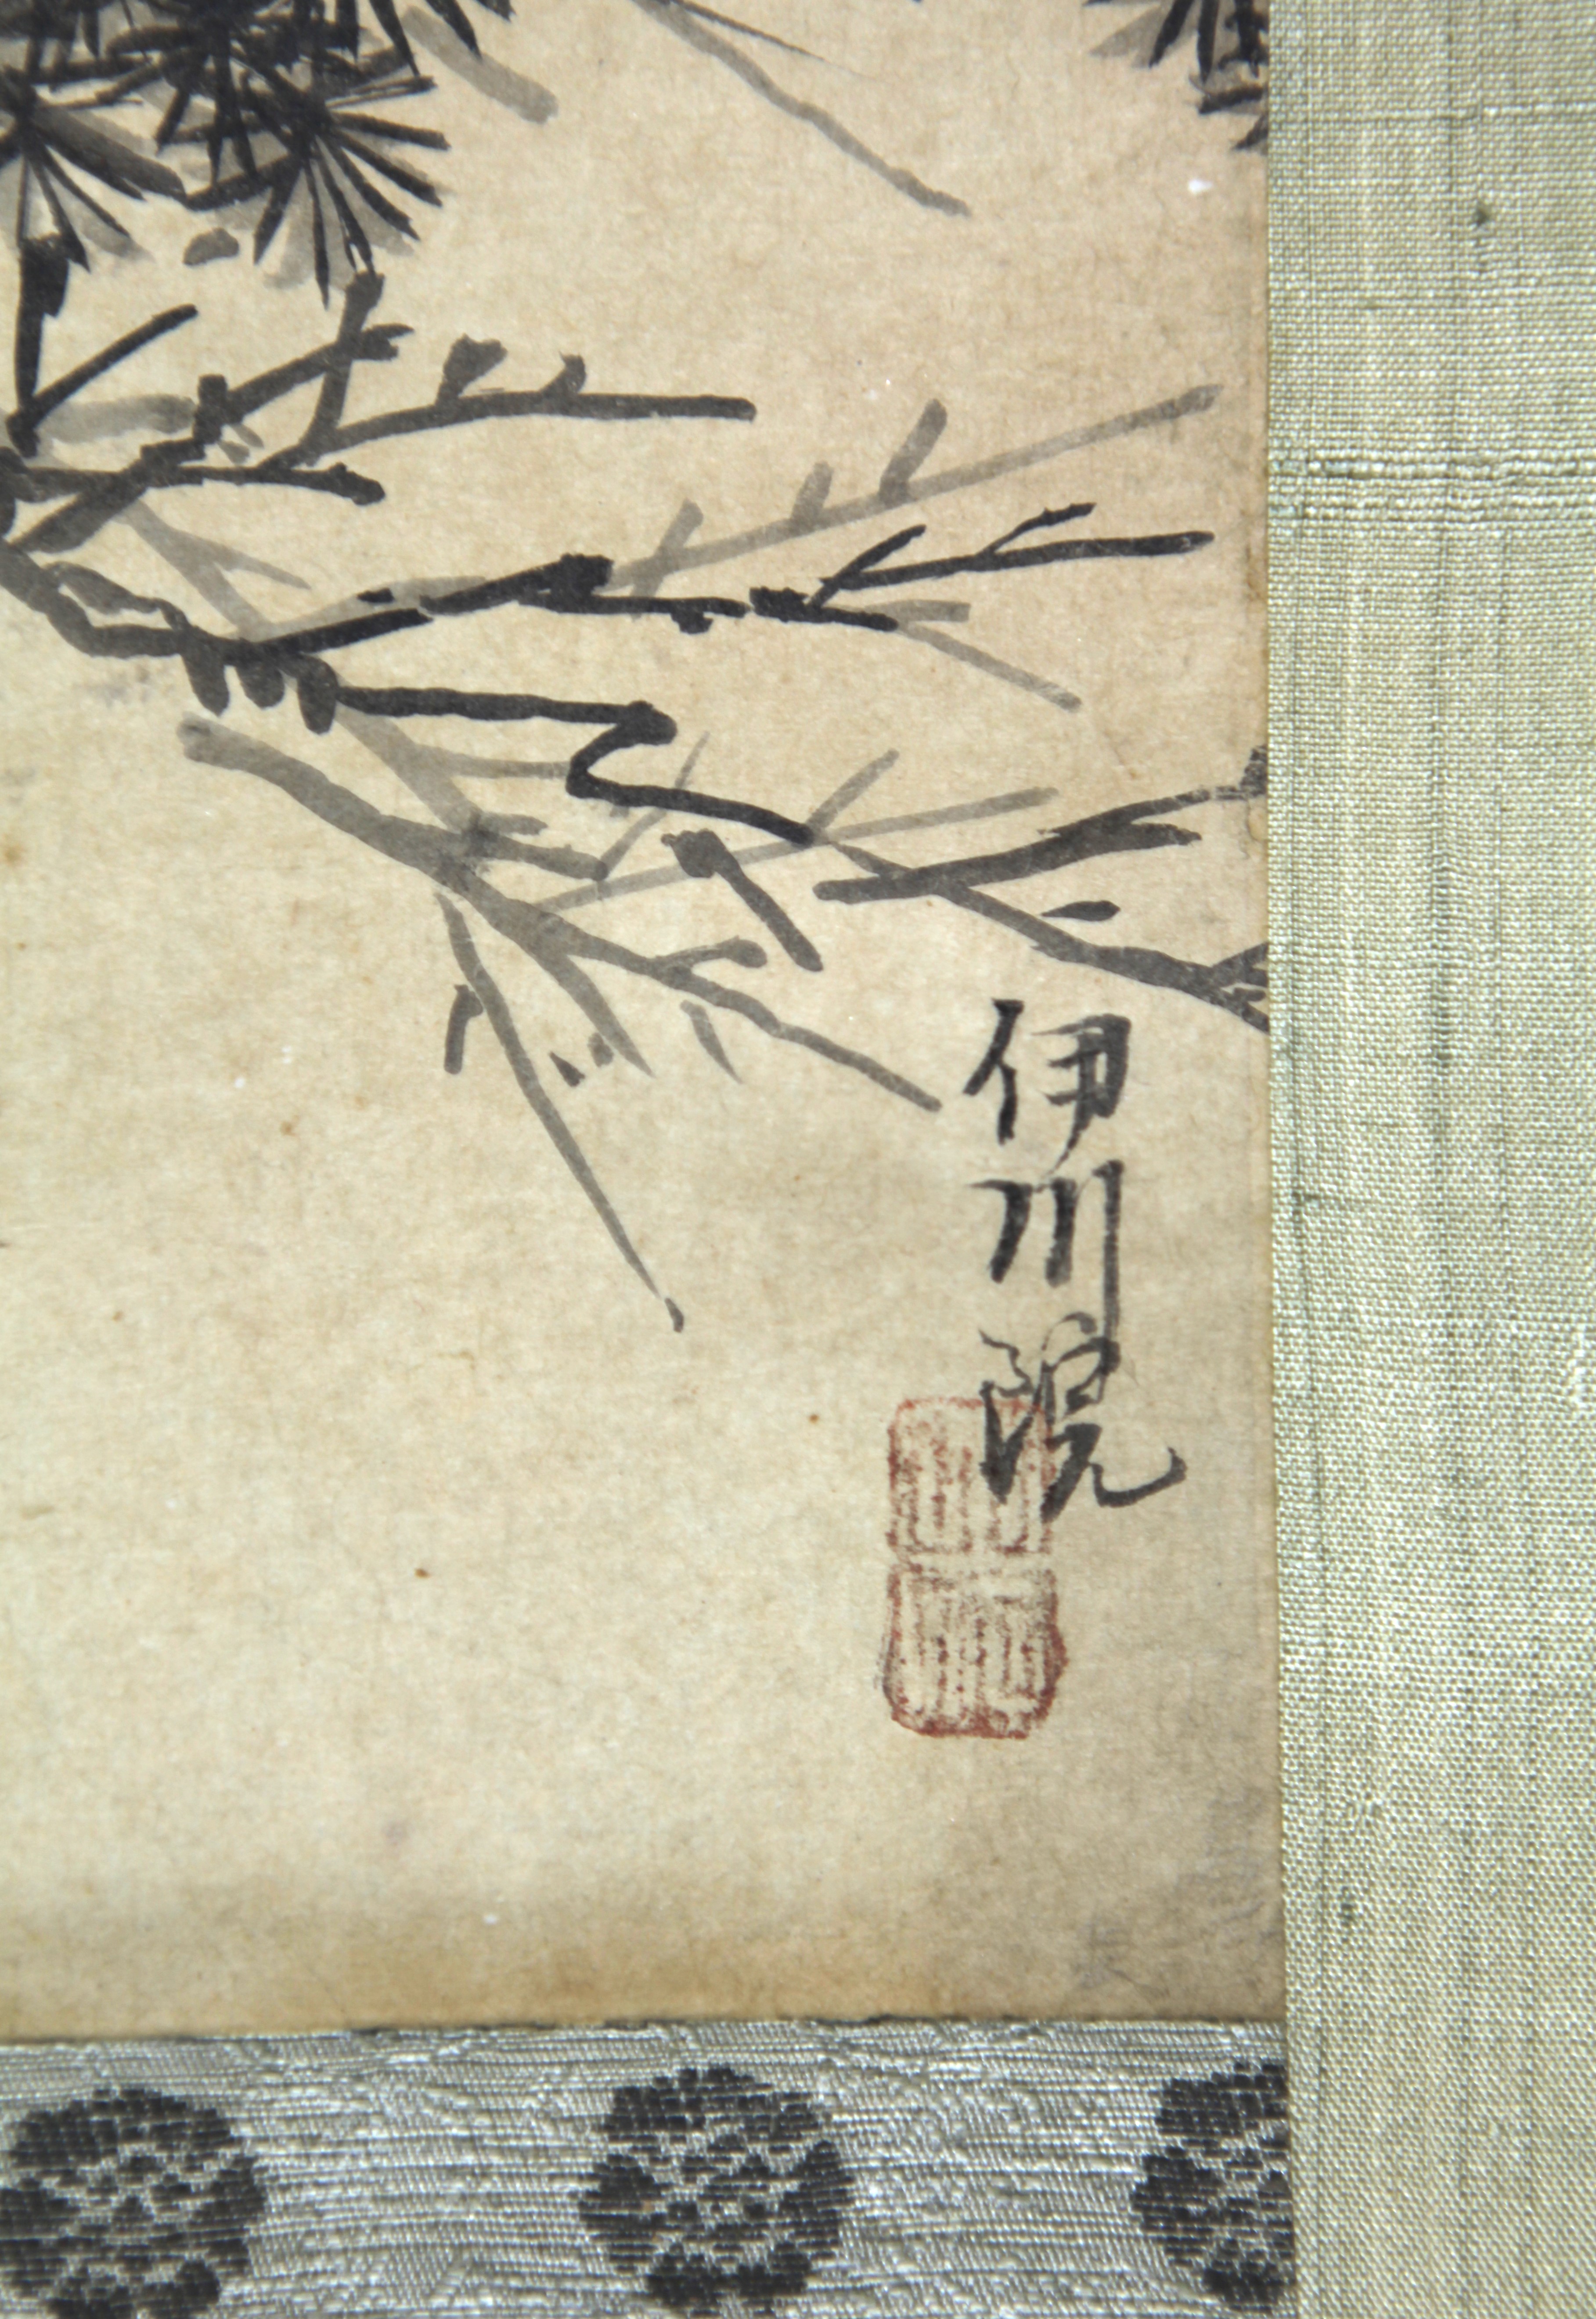 伊川院